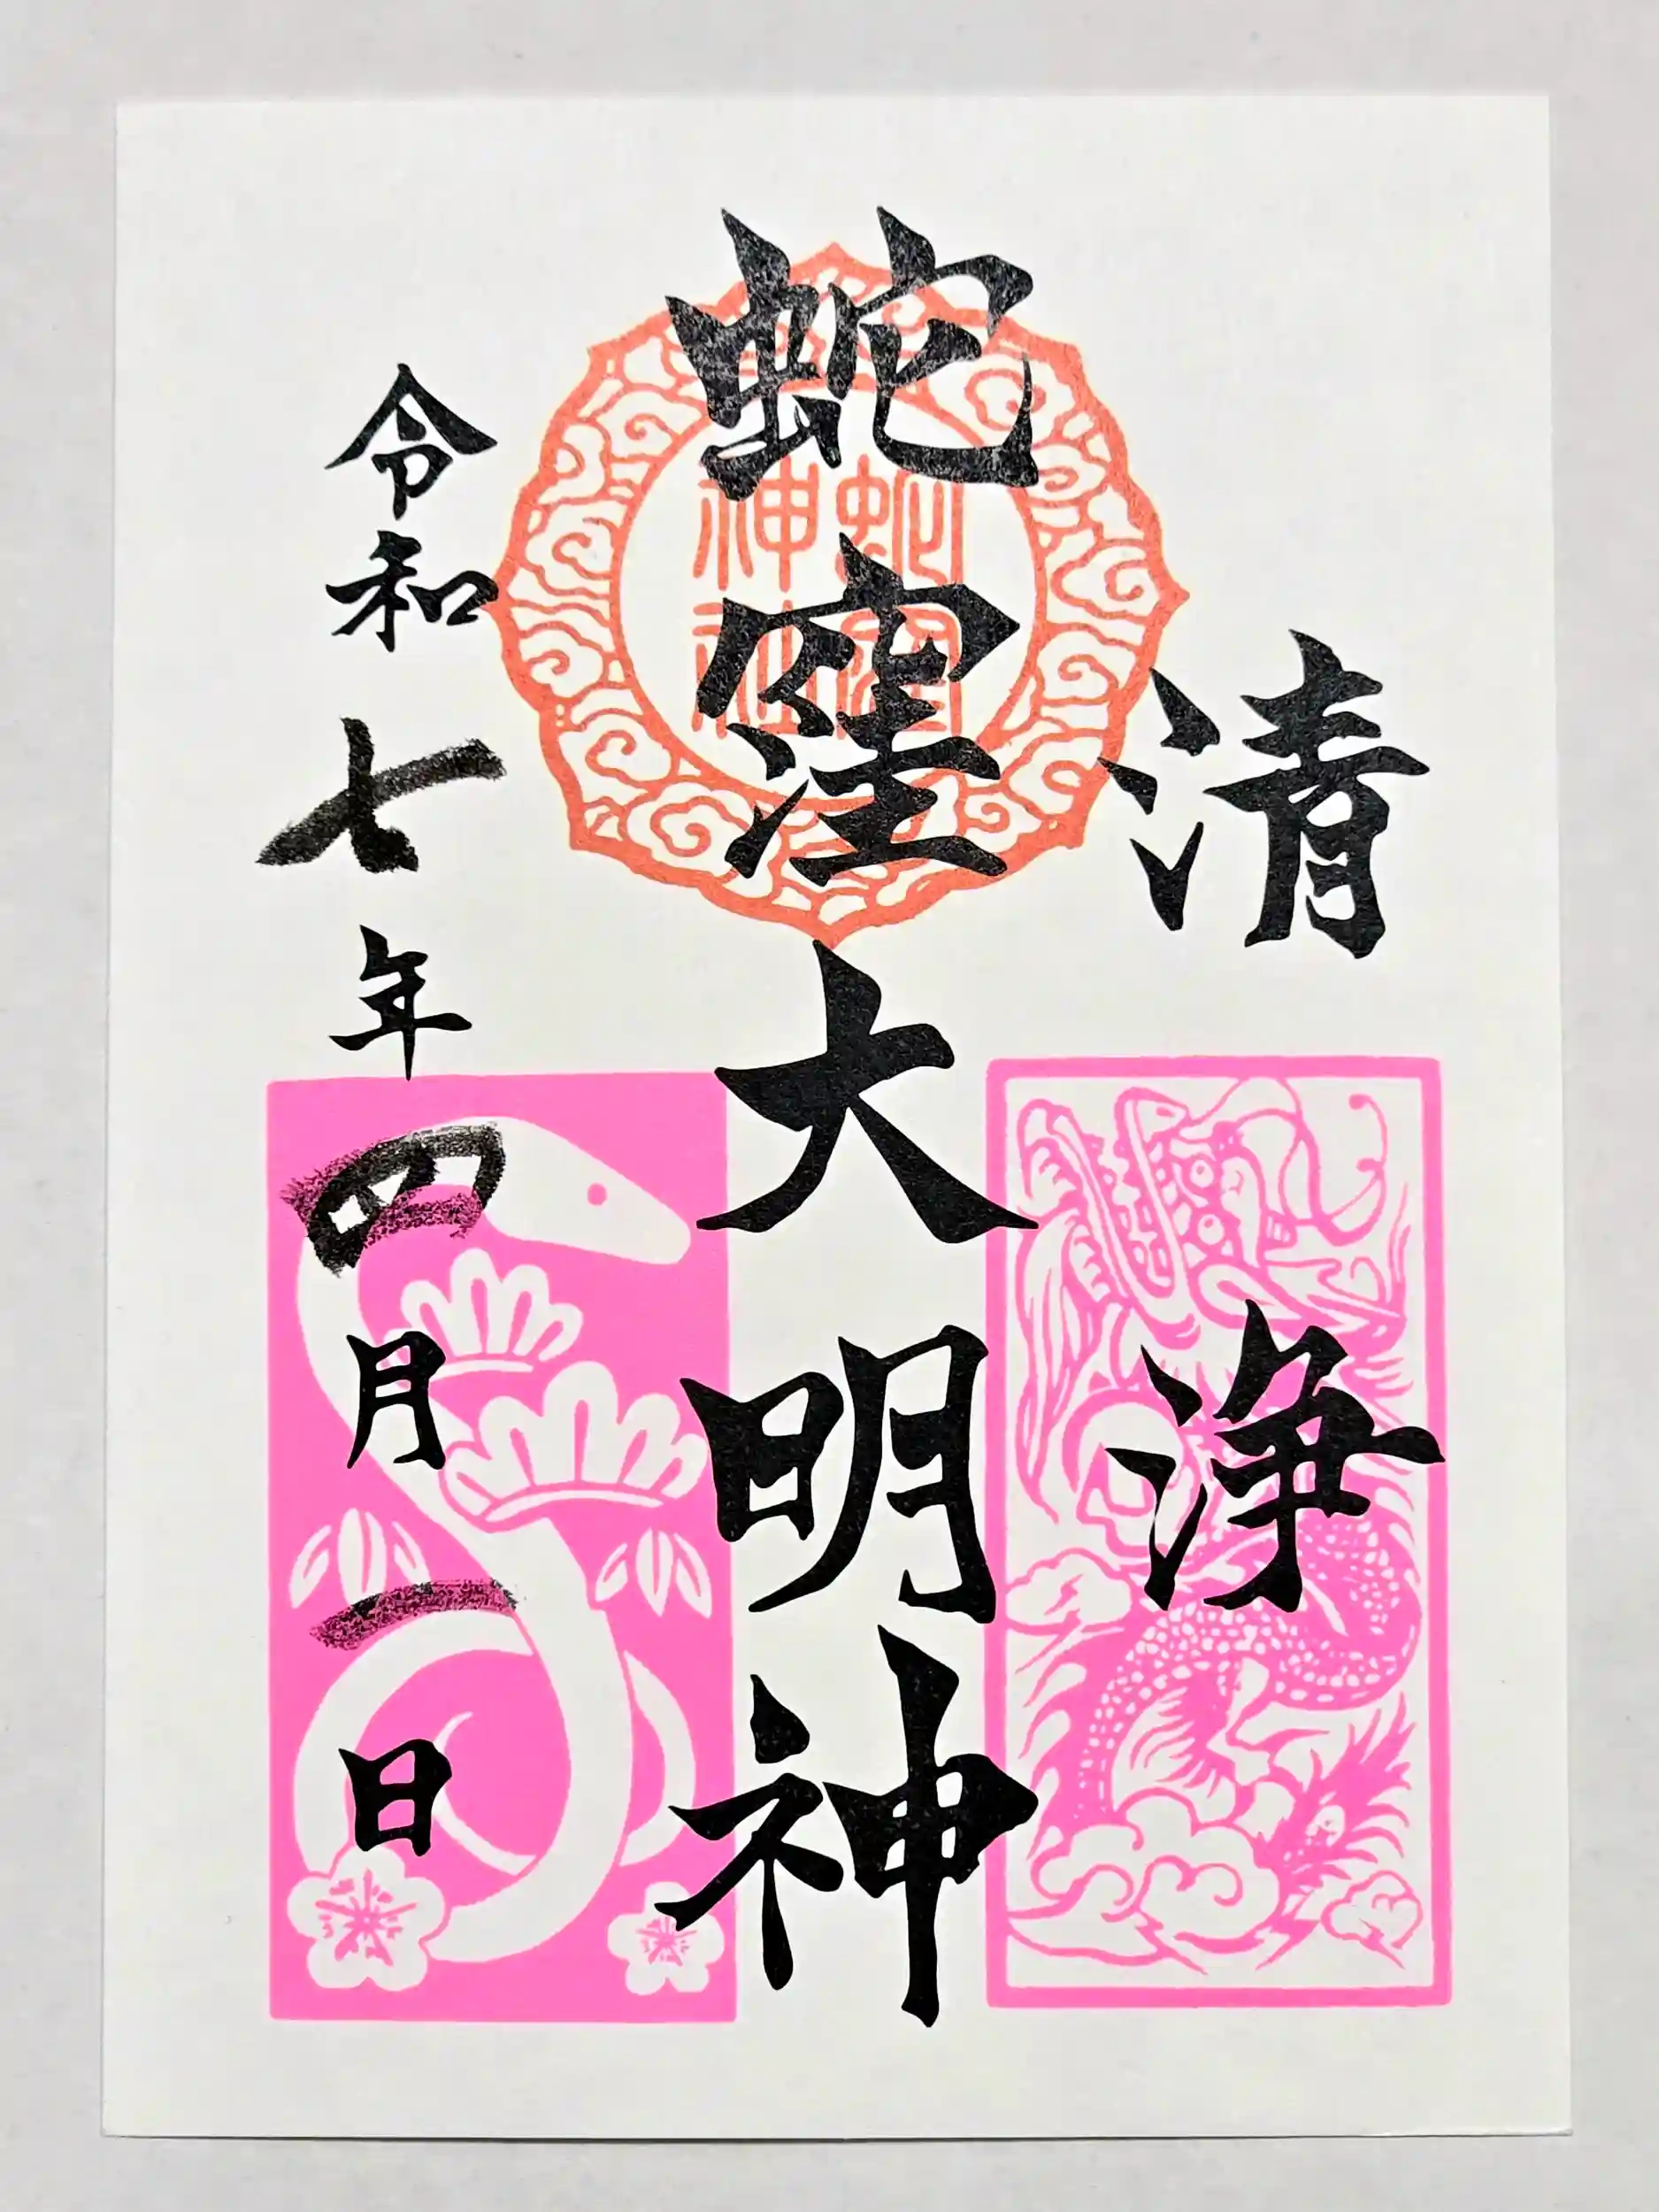 清浄
蛇窪大明神
令和七年四月一日
蛇窪
神社